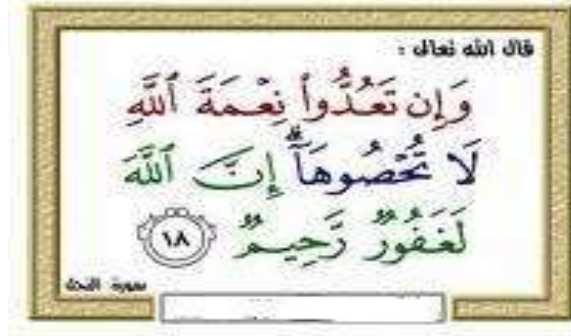 قال الله تعالى :
وَإِن تَعُدُّوا۟ نِعْمَةَ ٱللَّهِ
لَا تُحْصُوهَآ ۗ إِنَّ ٱللَّهَ
لَغَفُورٌ رَّحِيمٌ ١٨
سورة النحل